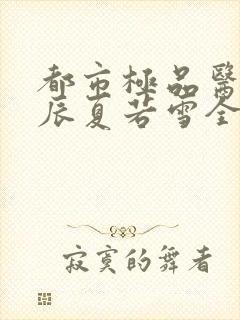 都市極品醫
辰夏若雪全
寂寞的舞者